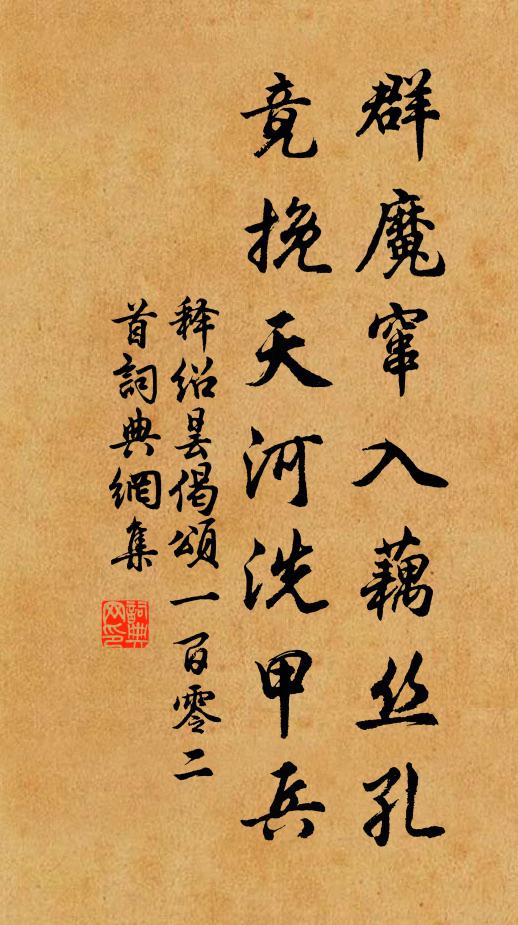 群魔窜入藕丝孔
竟挽天河洗甲兵
释绍昙偈颂一百零二
首词典網集
詞典网印